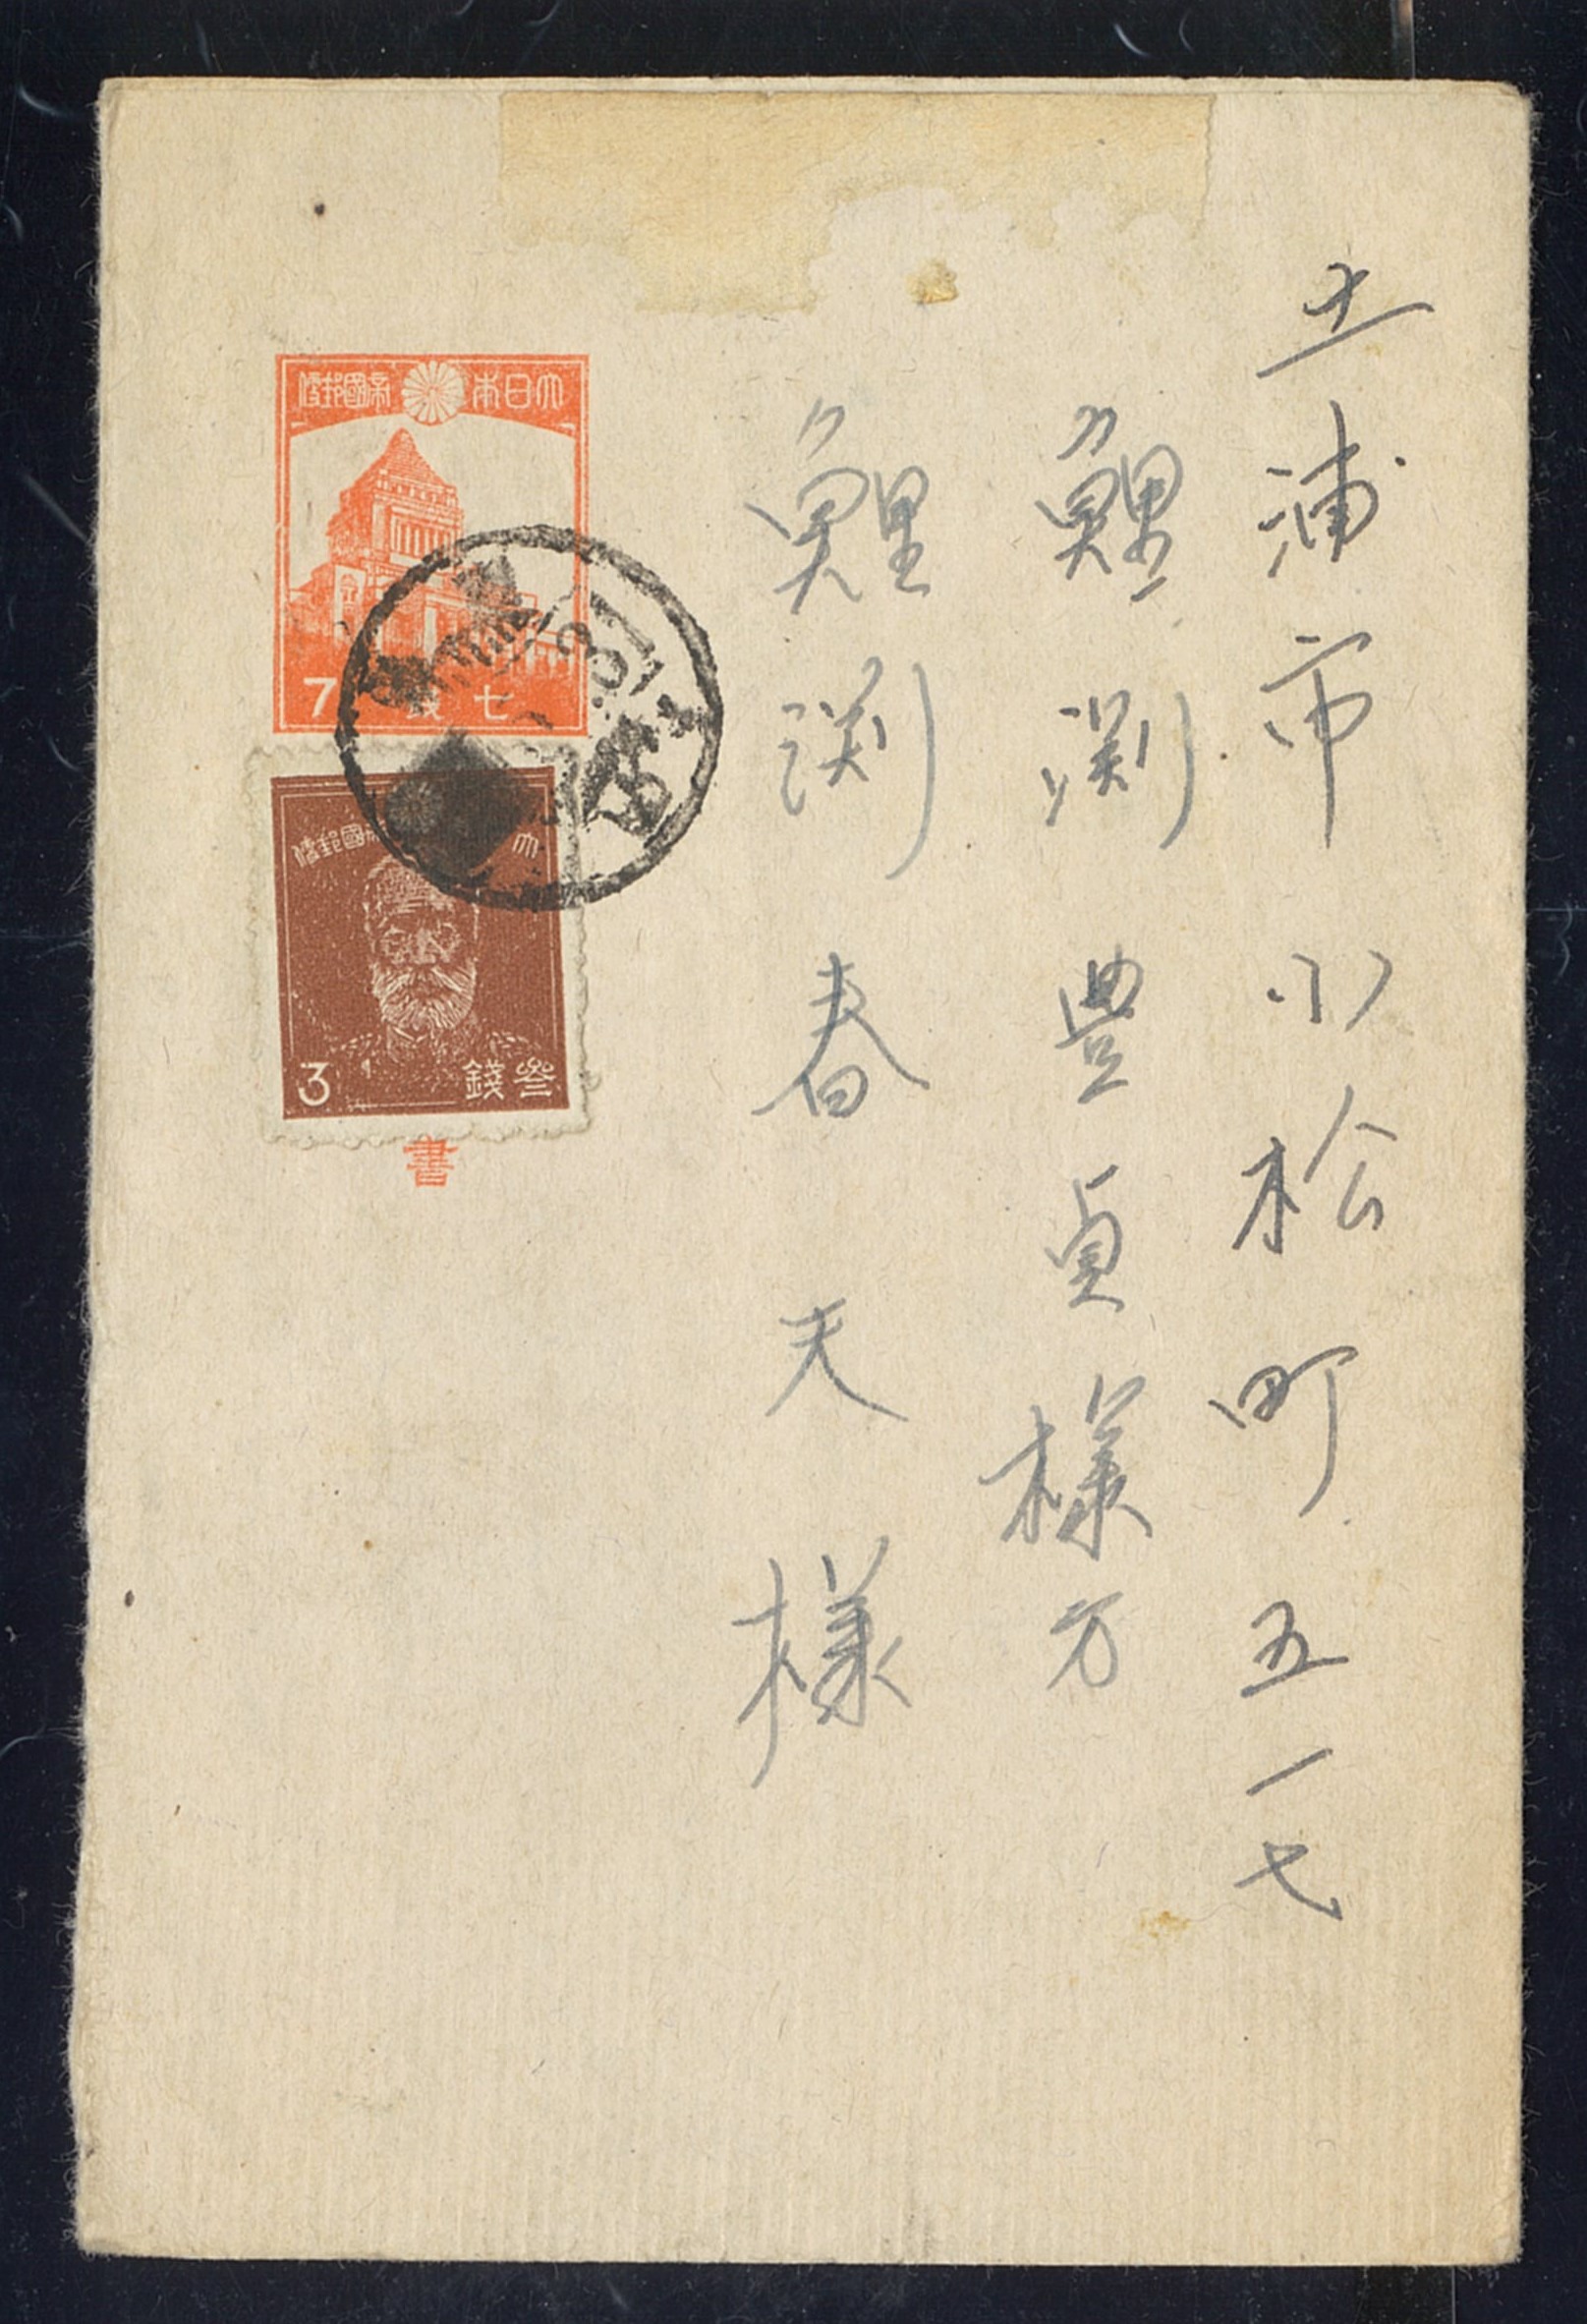 土浦市小松町五一七
鯉渕豊貞様方
鯉渕春夫様
大日本帝國郵便
7 七錢
大 帝國郵便
3 参錢
書